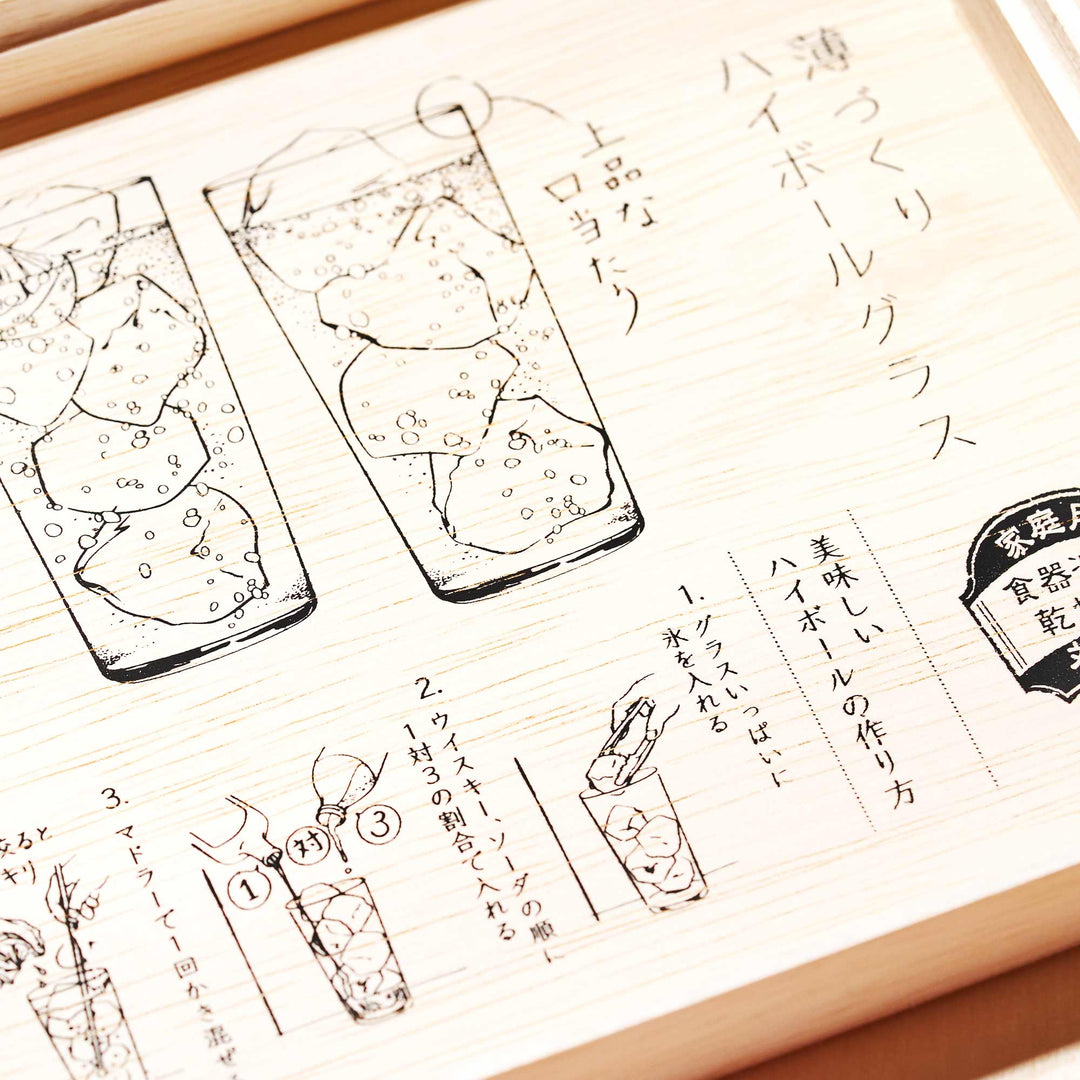 薄づくり
ハイボールグラス
上品な
口当たり
家庭用
食器洗
乾
美味しい
ハイボールの作り方
1. グラスいっぱいに
氷を入れる
2. ウイスキー、ソーダの順に
1対3の割合で入れる
① 対 ③
3. マドラーで1回かき混ぜ
ると
キリ